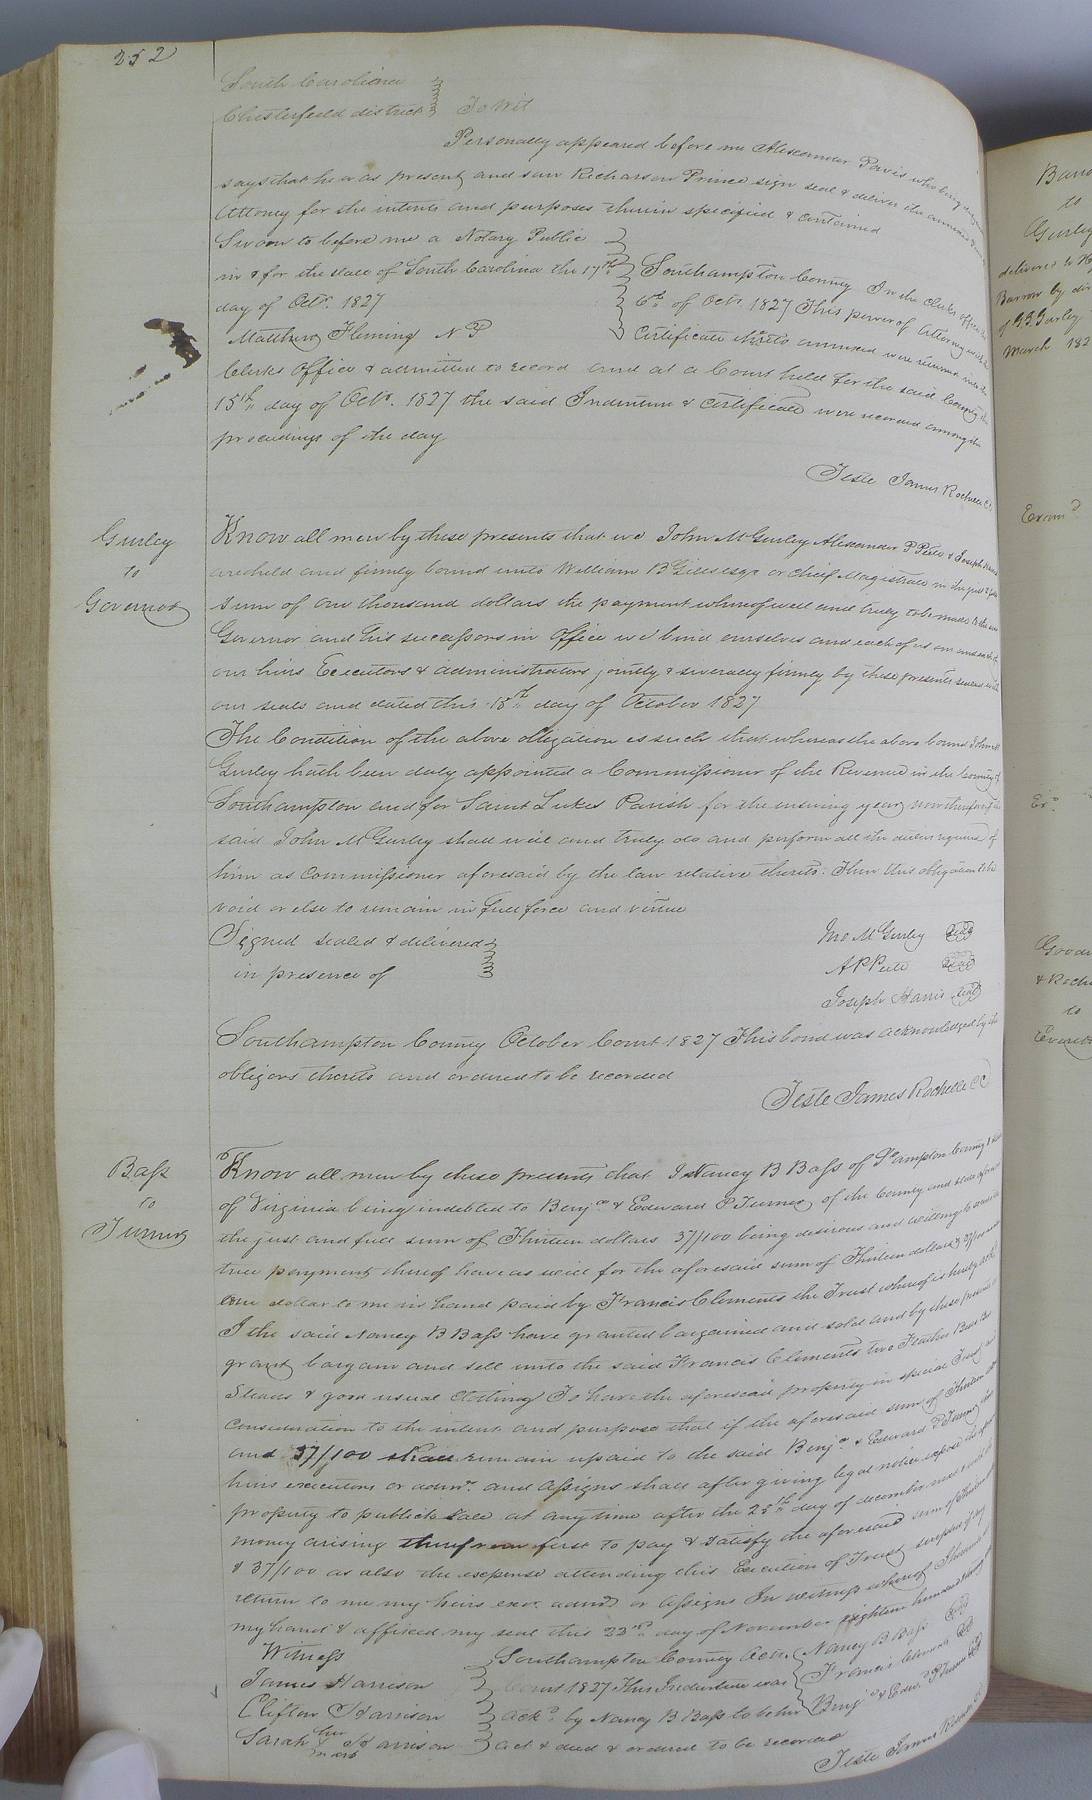 252
South Carolina
Chesterfield district To Wit
Personally appeared before me Alexander Pavis who being
says that he was present and saw Richarson Prince sign seal & deliver the annexed
Attorny for the intents and purposes therein specified & contained
Sworn to before me a Notary Public
in & for the state of South Carolina the 17th
day of Octr. 1827
Matthew Fleming N P
Southampton County In the Clerks office the
6th of Octr 1827 This power of Attorney with the
Certificate thereto annexed were returned into the
Clerks Office & admitted to record and at a Court held for the said County the
15th day of Octr. 1827 the said Indenture & Certificate were recorded among the
proceedings of the day
Teste James Rochelle CC
Gurley
to
Governor
Know all men by these presents that we John M Gurley Alexander P Peete & Joseph Harris
are held and firmly bound unto William B Giles esqr or chief Magistrate in the just & full
sum of one thousand dollars the payment whereof well and truly to be made to the said
Governor and his successors in Office we bind ourselves and each of us our and each of
our heirs Executors & administrators jointly & severally firmly by these presents sealed with
our seals and dated this 15th day of October 1827
The Condition of the above obligation is such that whereas the above bound John M
Gurley hath been duly appointed a Commissioner of the Revenue in the County of
Southampton and for Saint Lukes Parish for the ensuing year now therefore if the
said John M Gurley shall well and truly do and perform all the duties required of
him as Commissioner aforesaid by the law relative thereto. Then this obligation to be
void or else to remain in full force and virtue
Signed sealed & delivered
in presence of
Jno M Gurley Seal
A P Peete Seal
Joseph Harris Seal
Southampton County October Court 1827 This bond was acknowledged by the
obligors thereto and ordered to be recorded
Teste James Rochelle CC
Bass
to
Turner
Know all men by these presents that I Nancy B Bass of S'ampton County & state
of Virginia being indebted to Benja & Edward P Turner of the County and state aforesaid
the just and full sum of Thirteen dollars 37/100 being desirous and willing to secure the
true payment thereof have as well for the aforesaid sum of Thirteen dollars & 37/100 and
one dollar to me in hand paid by Francis Clements the Trust whereof is hereby
I the said Nancy B Bass have granted bargained and sold and by these presents
grant bargain and sell unto the said Francis Clements two Feather Beds
Steads & good usual Clothing To have the aforesaid property in special Trust
consideration to the intent and purpose that if the aforesaid sum of Thirteen
and 37/100 shall remain upaid to the said Benja & Edward P Turner
heirs executors or admr. and Assigns shall after giving legal notice expose the
property to publick sale at any time after the 25th day of december next
money arising therefrom first to pay & satisfy the aforesaid sum of Thirteen
& 37/100 as also the expense attending this Execution of Trust surplus if any
return to me my heirs exor. admr or Assigns In witness whereof I have
my hand & affixed my seal this 23rd day of November eighteen hundred
Witness
James Harrison
Clifton Harrison
Sarah her mark Harrison
Southampton County Octr.
Court 1827 This Indenture was
ackd. by Nancy B Bass to be her
act & deed & ordered to be recorded
Nancy B Bass Seal
Francis Clements Seal
Benja & Edwd P Turner Seal
Teste James Rochelle CC
Barro
to
Gurley
delivered to
Barrow by
of G. Gurley
March 182
Examd
Exd
Good
& Roch
to
Everett